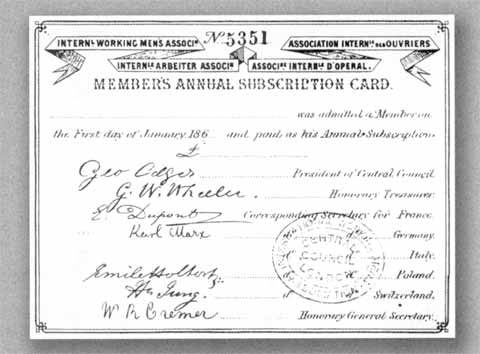 No. 5351
INTERNL. WORKING MEN'S ASSOCIN.
ASSOCIATION INTERNLE. DES OUVRIERS
INTERNLE ARBEITER ASSOCIN.
ASSOCINE INTERNLE D'OPERAI.
MEMBER'S ANNUAL SUBSCRIPTION CARD.
was admitted a Member on
the First day of January 186 and paid as his Annual Subscription
£
Geo Odger President of Central Council.
G. W. Wheeler. Honorary Treasurer.
E. Dupont Corresponding Secretary for France.
Karl Marx d Germany.
Italy.
Emile Holtorp. d Poland.
Hn Jung. d Switzerland.
W R Cremer Honorary General Secretary.
CENTRAL
COUNCIL
LONDON